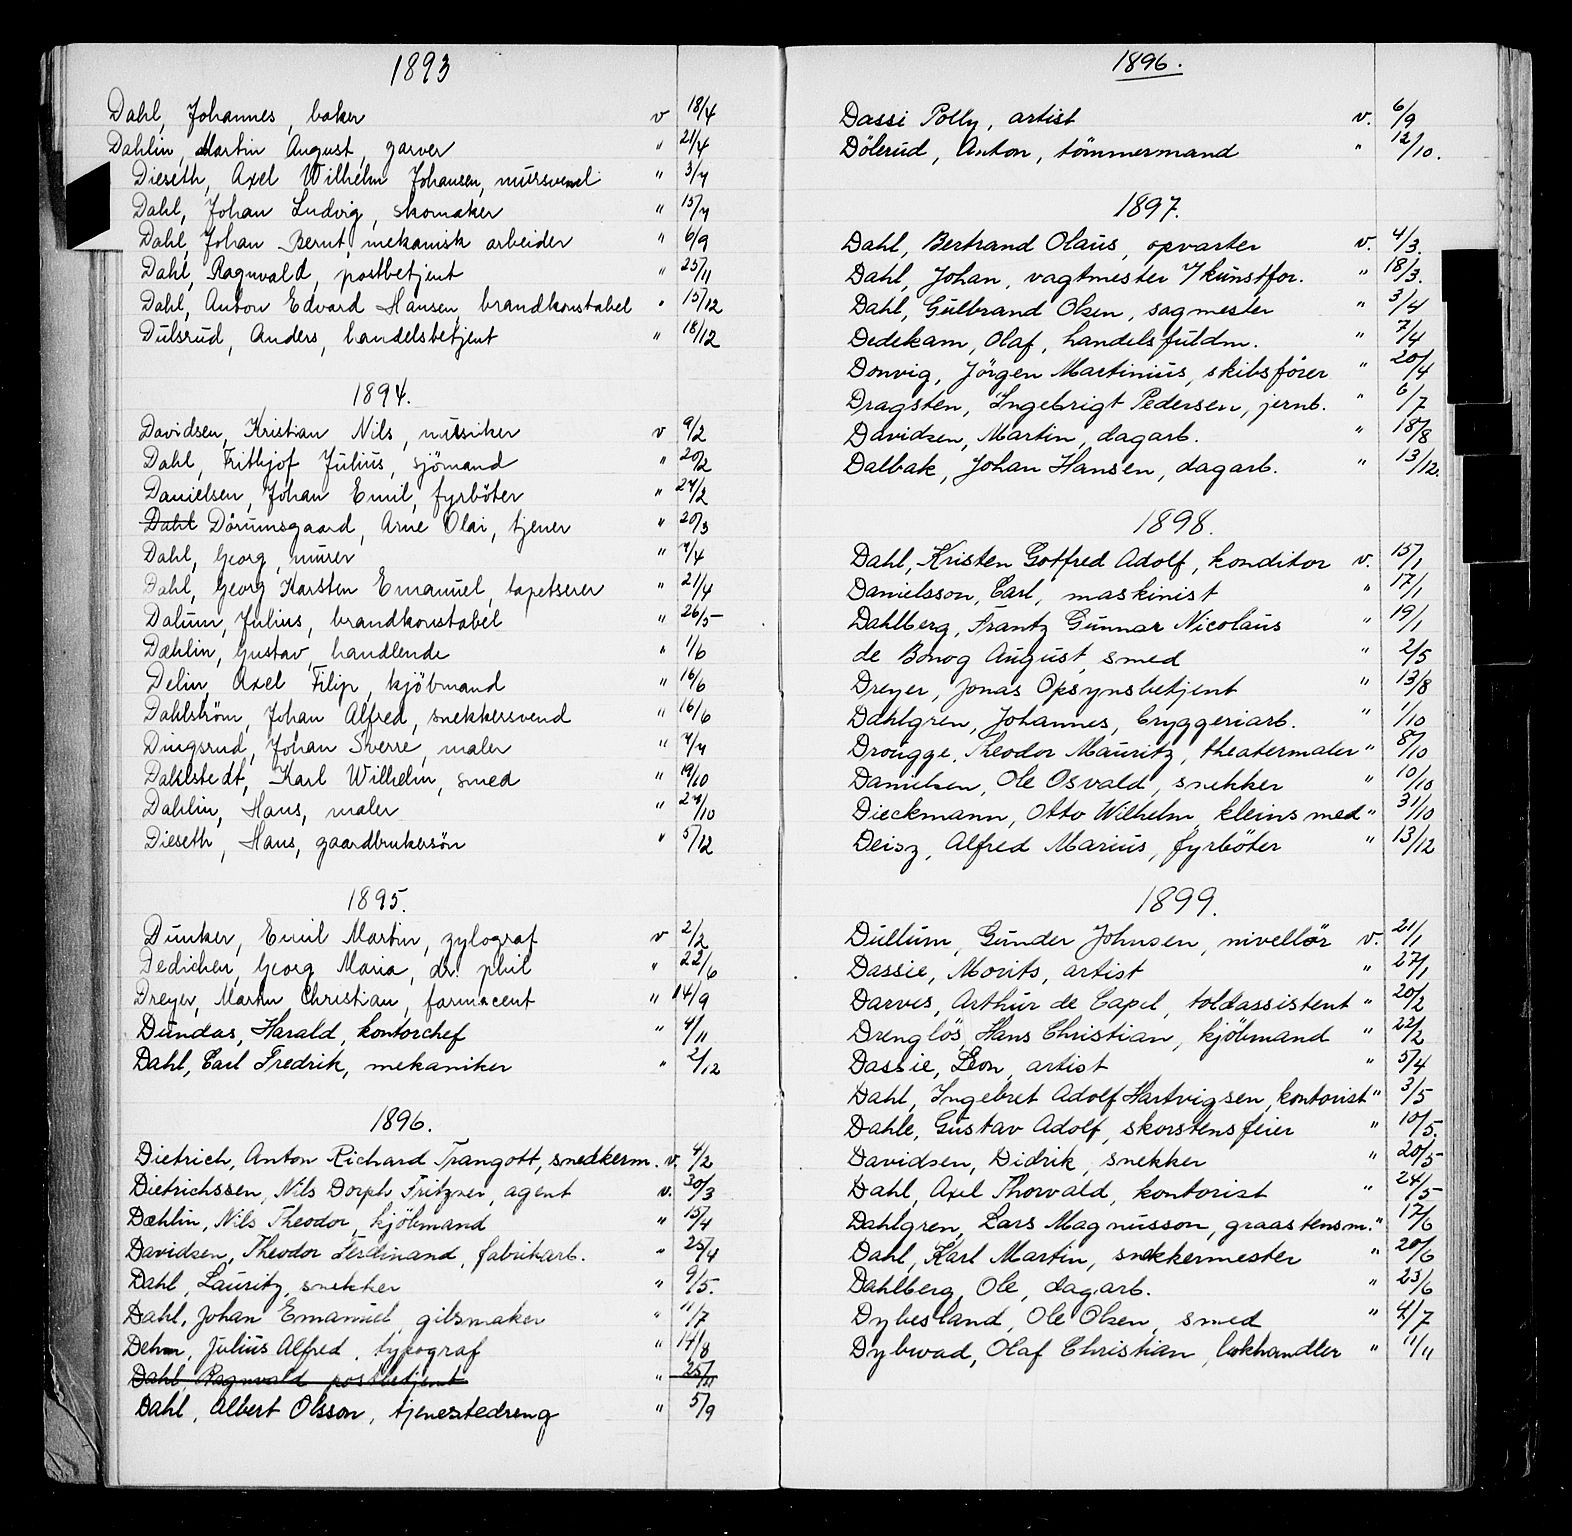 1893
Dahl, Johannes, baker v 18/4
Dahlin, Martin August, garver " 21/4
Dieseth, Axel Wilhelm Johansen, mursvend " 3/7
Dahl, Johan Ludvig, skomaker " 15/7
Dahl, Johan Bernt, mekanisk arbeider " 6/9
Dahl, Ragnvald, postbetjent " 25/11
Dahl, Anton Edvard Hansen, brandkonstabel " 15/12
Dulsrud, Anders, handelsbetjent " 18/12
1894.
Davidsen, Kristian Nils, musiker v 9/2
Dahl, Frithjof Julius, sjömand " 20/2
Danielsen, Johan Emil, fyrböter " 27/2
Dahl Dörumsgaard, Arne Olai, tjener " 20/3
Dahl, Georg, murer " 7/4
Dahl, Georg Karsten Emanuel, tapetserer " 21/4
Dalum, Julius, brandkonstabel " 26/5
Dæhlin, Gustav, handlende " 1/6
Delin, Axel Filip, kjöbmand " 16/6
Dahlström, Johan Alfred, snekkersvend " 16/6
Dingsrud, Johan Sverre, maler " 7/7
Dahlstedt, Karl Wilhelm, smed " 19/10
Dahlin, Hans, maler " 27/10
Dieseth, Hans, gaardbrukersön " 5/12
1895.
Dunker, Emil Martin, zylograf v 2/2
Dedichen, Georg Maria, dr. phil " 22/6
Dreyer, Martin Christian, farmacent " 14/9
Dundas, Harald, kontorchef " 4/11
Dahl, Carl Fredrik, mekaniker " 2/12
1896.
Dietrich, Anton Richard Trangott, snedkerm. v. 4/2
Dietrichssen, Nils Dorph Fritzner, agent v. 30/3
Dæhlin, Nils Theodor, kjöbmand " 15/4
Davidsen, Theodor Ferdinand, fabrikarb. " 25/4
Dahl, Lauritz, snekker " 9/5.
Dahl, Johan Emanuel, gibsmaker " 11/7
Dehm, Julius Alfred, typograf " 14/8
Dahl, Ragnvald postbetjent " 25/11
Dahl, Albert Olsson, tjenestedreng " 5/9
1896.
Dassi Polly, artist v. 6/9
Dölerud, Anton, tömmermand " 12/10.
1897.
Dahl, Bertrand Olaus, opvarter v. 4/3.
Dahl, Johan, vagtmester v/ kunstfor. " 18/3.
Dahl, Gulbrand Olsen, sagmester " 3/4
Dedekam, Olaf, handelsfuldm. " 7/4
Donvig, Jörgen Martinius, skibsförer " 20/4
Dragsten, Ingebrigt Pedersen, jernb. " 6/7
Davidsen, Martin, dagarb. " 18/8
Dalbak, Johan Hansen, dagarb. " 13/12.
1898.
Dahl, Kristen Gotfred Adolf, konditor v. 15/1
Danielsson, Carl, maskinist " 17/1
Dahlberg, Frantz Gunnar Nicolaus " 19/1
de Bonog August, smed " 2/5
Dreyer, Jonas Opsynsbetjent " 13/8
Dahlgren, Johannes, bryggeriarb. " 1/10
Drougge, Theodor Mauritz, theatermaler " 8/10
Danielsen, Ole Osvald, snekker " 10/10
Dieckmann, Otto Wilhelm, kleinsmed " 31/10
Deisz, Alfred Marius, fyrböter " 13/12
1899.
Dullum, Gunder Johnsen, nivellör v. 21/1
Dassie, Morits, artist " 27/1
Darvis, Arthur de Capel, toldassistent " 20/2
Drenglös, Hans Christian, kjöbmand " 22/2
Dassie, Leon, artist " 5/4
Dahl, Ingebret Adolf Hartvigsen, kontorist " 3/5
Dahle, Gustav Adolf, skorstensfeier " 10/5.
Davidsen, Didrik, snekker " 20/5
Dahl, Axel Thorvald, kontorist " 24/5
Dahlgren, Lars Magnusson, graastensm. " 17/6
Dahl, Karl Martin, snekkermester " 20/6
Dahlberg, Ole, dagarb. " 23/6
Dybesland, Ole Olsen, smed " 4/7
Dybwad, Olaf Christian, bokhandler " 11/11